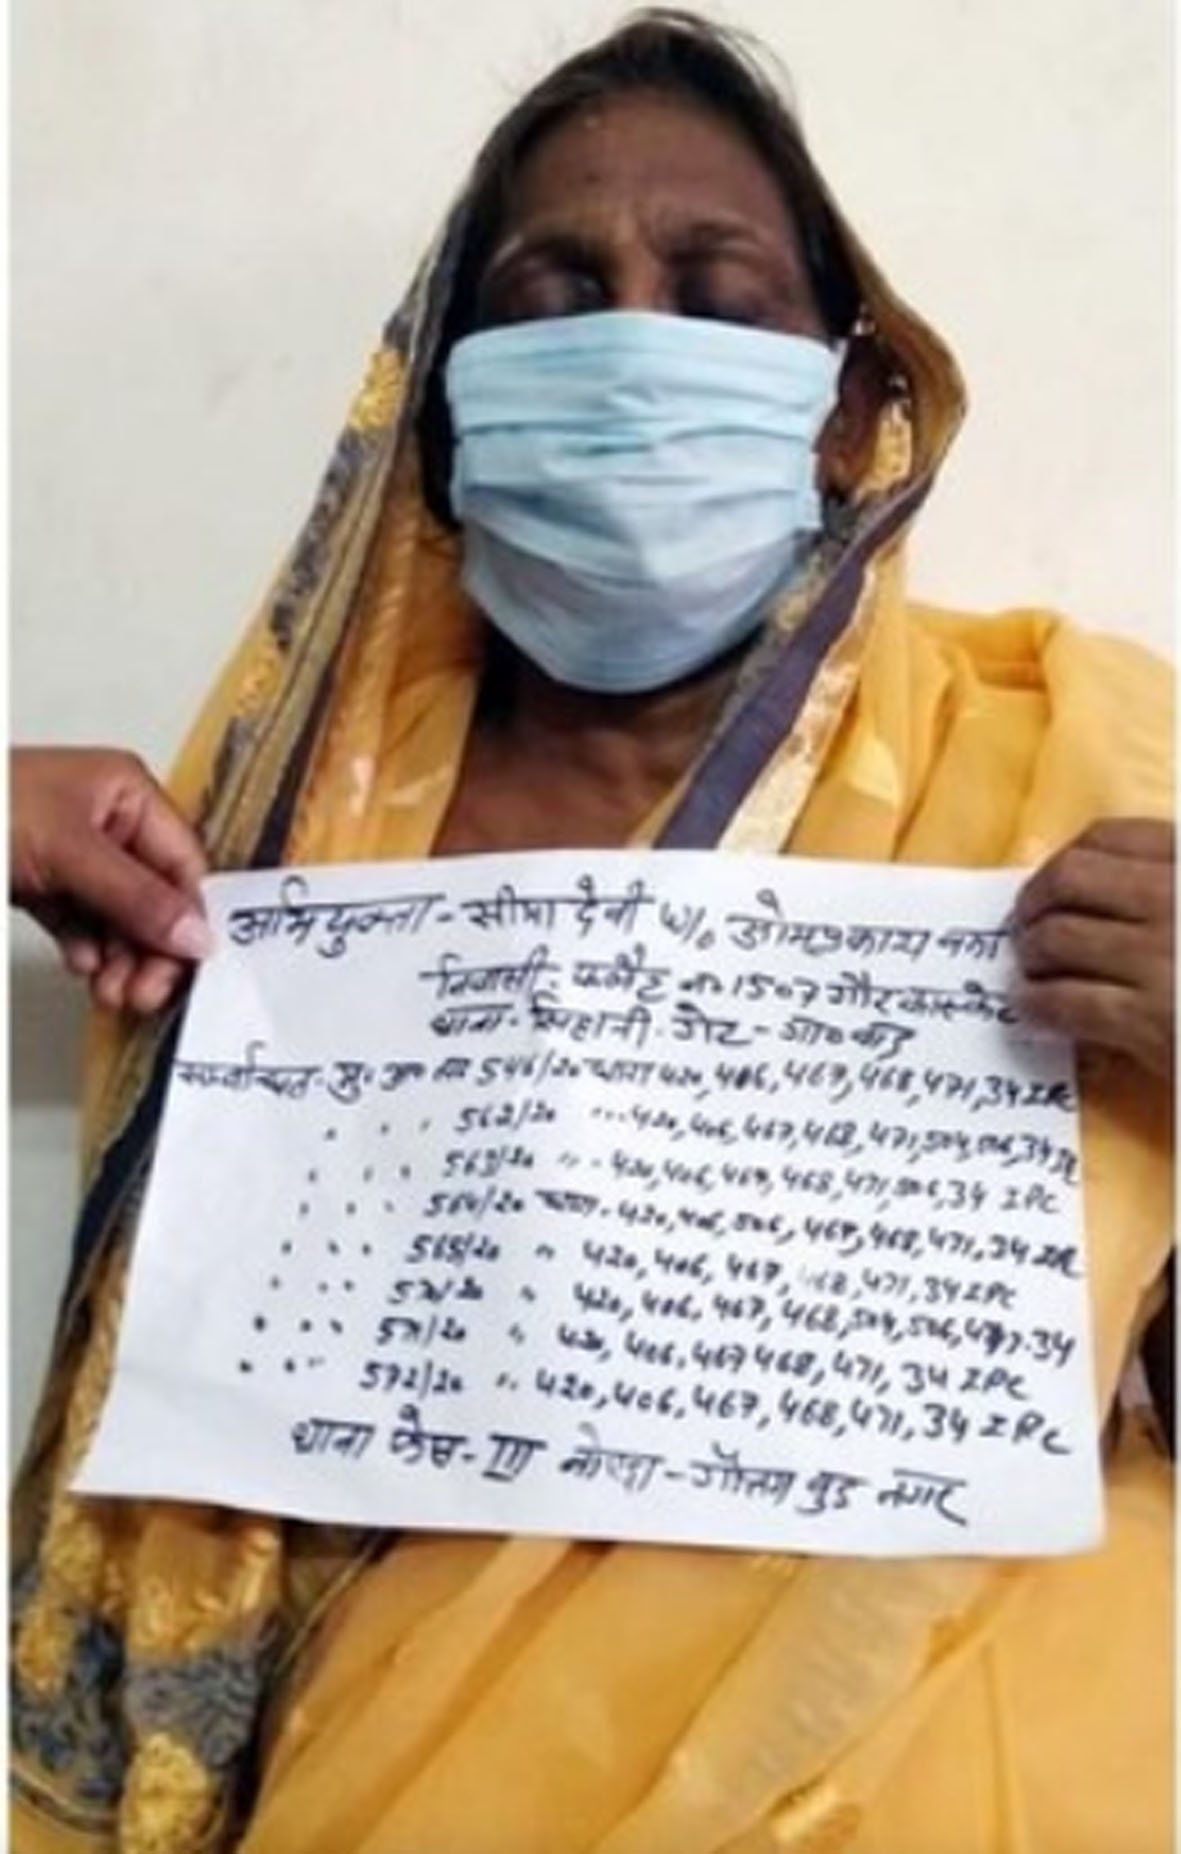 अभियुक्ता - सीमा देवी w/o ओमप्रकाश
निवासी. फ्लैट न० 1507 गौर कास्केट
थाना - सिहानी. गेट - गा०बाद
सम्बन्धित - मु. अ० न० 546/20 धारा 420, 406, 467, 468, 471, 34 IPC
" " " 562/20 " 420, 406, 467, 468, 471, 504, 506, 34 IPC
" " " 563/20 " - 420, 406, 467, 468, 471, 506, 34 IPC
" " " 564/20 धारा. 420, 406, 506, 467, 468, 471, 34 IPC
" " " 565/20 " 420, 406, 467, 468, 471, 34 IPC
" " " " 420, 406, 467, 468, 504, 506, 34
" " " 571/20 " 420, 406, 467 468, 471, 34 IPC
" " " 572/20 " 420, 406, 467, 468, 471, 34 IPC
थाना फेस - III नोएडा - गौतम बुद्ध नगर